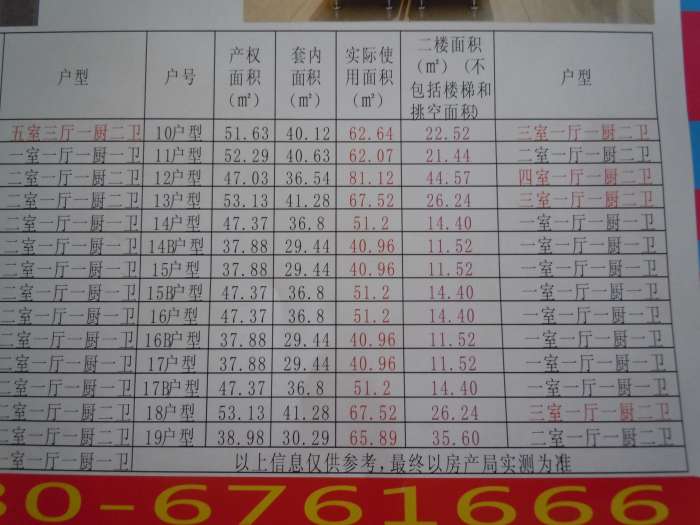 户型 户号 产权面积(㎡) 套内面积(㎡) 实际使用面积(㎡) 二楼面积(㎡)(不包括楼梯和挑空面积) 户型
五室三厅一厨二卫 10户型 51.63 40.12 62.64 22.52 三室一厅一厨二卫
一室一厅一厨一卫 11户型 52.29 40.63 62.07 21.44 二室一厅一厨二卫
二室一厅一厨二卫 12户型 47.03 36.54 81.12 44.57 四室一厅一厨二卫
二室一厅一厨二卫 13户型 53.13 41.28 67.52 26.24 三室一厅一厨二卫
二室一厅一厨一卫 14户型 47.37 36.8 51.2 14.40 一室一厅一厨一卫
二室一厅一厨一卫 14B户型 37.88 29.44 40.96 11.52 一室一厅一厨一卫
二室一厅一厨一卫 15户型 37.88 29.44 40.96 11.52 一室一厅一厨一卫
二室一厅一厨一卫 15B户型 47.37 36.8 51.2 14.40 一室一厅一厨一卫
二室一厅一厨一卫 16户型 47.37 36.8 51.2 14.40 一室一厅一厨一卫
二室一厅一厨一卫 16B户型 37.88 29.44 40.96 11.52 一室一厅一厨一卫
二室一厅一厨一卫 17户型 37.88 29.44 40.96 11.52 一室一厅一厨一卫
二室一厅一厨一卫 17B户型 47.37 36.8 51.2 14.40 一室一厅一厨一卫
二室一厅一厨二卫 18户型 53.13 41.28 67.52 26.24 三室一厅一厨二卫
二室一厅一厨二卫 19户型 38.98 30.29 65.89 35.60 二室一厅一厨二卫
一室一厅一厨一卫 以上信息仅供参考,最终以房产局实测为准
80-6761666